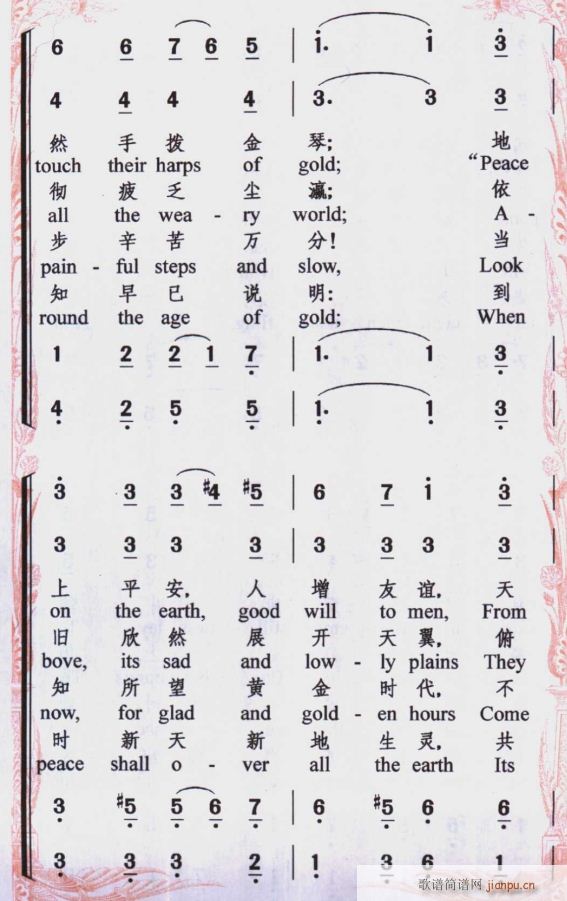 6 6 7 6 5 | 1. 1 3
4 4 4 4 | 3. 3 3
然 手 拨 金 琴; 地
touch their harps of gold; “Peace
彻 疲 乏 尘 瀛; 依
all the wea - ry world; A -
步 辛 苦 万 分! 当
pain - ful steps and slow, Look
知 早 已 说 明: 到
round the age of gold; When
1 2 2 1 7 | 1. 1 3
4 2 5 5 | 1. 1 3
3 3 3 #4 #5 | 6 7 1 3
3 3 3 3 | 3 3 3 3
上 平 安, 人 增 友 谊, 天
on the earth, good will to men, From
旧 欣 然 展 开 天 翼, 俯
bove, its sad and low - ly plains They
知 所 望 黄 金 时 代, 不
now, for glad and gold - en hours Come
时 新 天 新 地 生 灵, 共
peace shall o - ver all the earth Its
3 #5 5 6 7 | 6 #5 6 6
3 3 3 2 | 1 3 6 1
歌谱简谱网 jianpu.cn